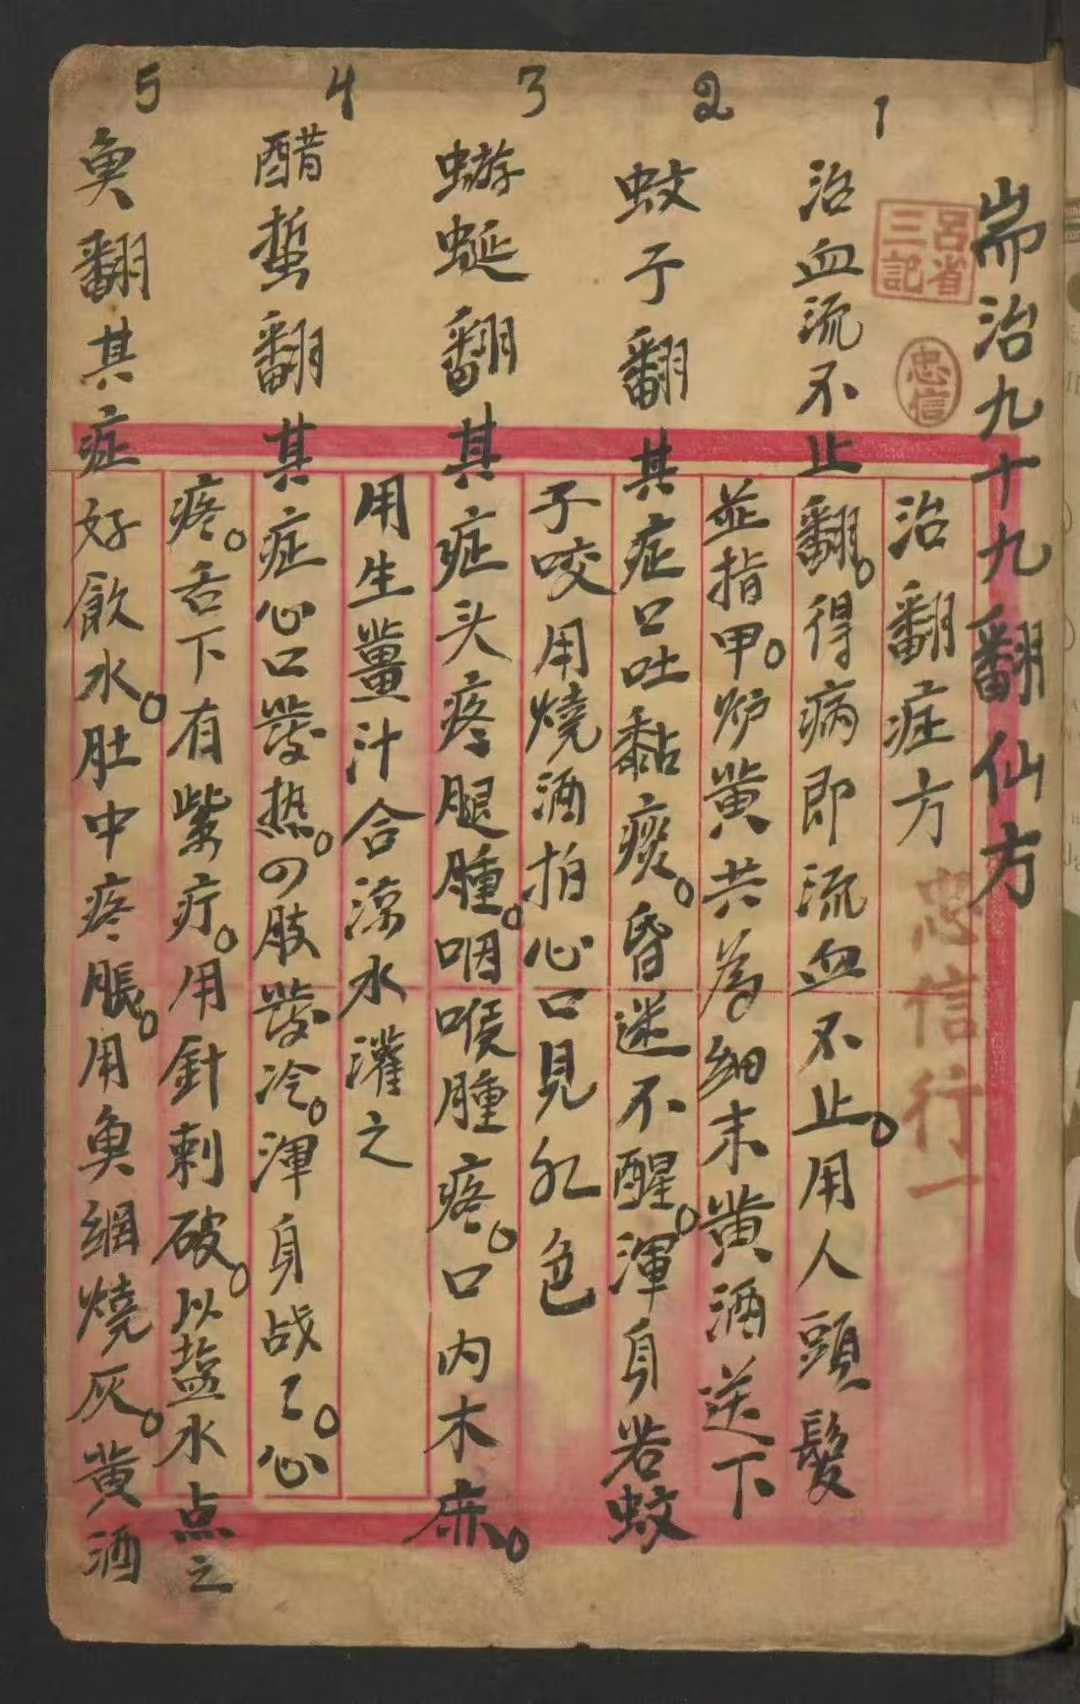 耑治九十九翻仙方
呂省三記
忠信
治翻症方
忠信行一
1
治血流不止翻。得病即流血不止。用人頭髮
並指甲。炉黄共為細末黄酒送下
2
蚊子翻其症口吐黏痰。昏迷不醒。渾身若蚊
子咬用燒酒拍心口見紅色
3
蝣蜒翻其症头疼腿腫。咽喉腫疼。口内木麻。
用生薑汁合涼水灌之
4
醋蜇翻其症心口發热。四肢發冷。渾身战了。心
疼。舌下有紫疔。用針刺破。以盐水点之
5
魚翻其症好飲水。肚中疼脹。用魚網燒灰。黄酒